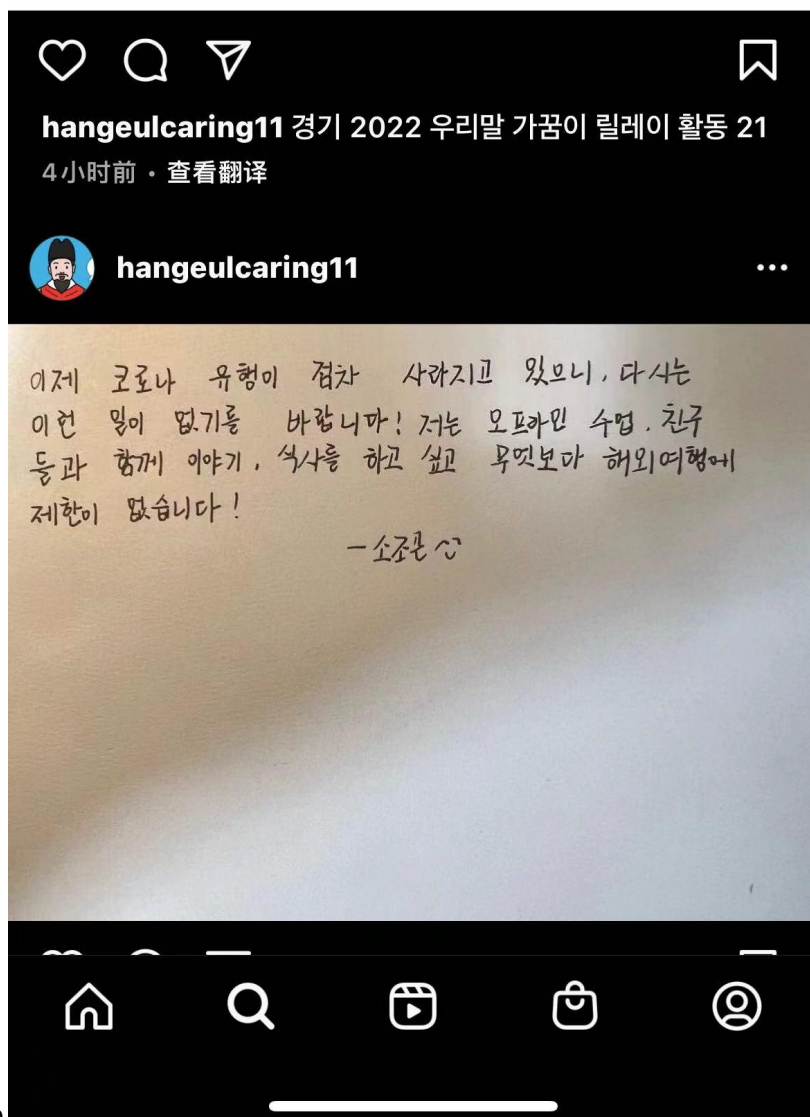 hangeulcaring11 경기 2022 우리말 가꿈이 릴레이 활동 21
4小时前 • 查看翻译
hangeulcaring11
이제 코로나 유행이 점차 사라지고 있으니, 다시는
이런 일이 없기를 바랍니다! 저는 오프라인 수업, 친구
들과 함께 이야기, 식사를 하고 싶고 무엇보다 해외여행에
제한이 없습니다!
- 소조곤